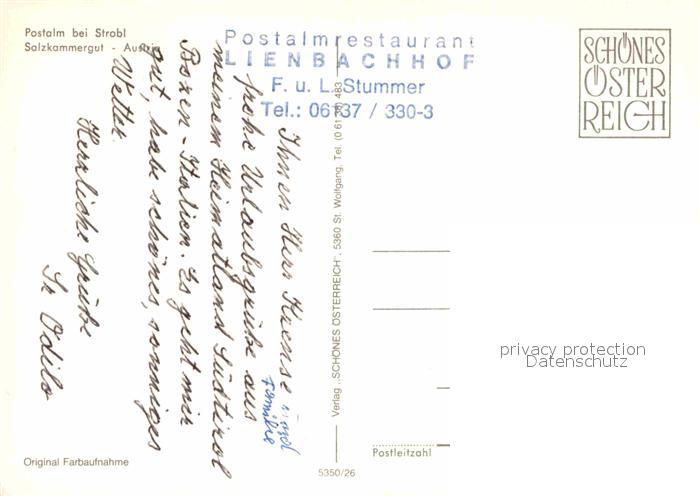 Postalm bei Strobl
Salzkammergut - Austria
Postalmrestaurant
LIENBACHHOF
F. u. L. Stummer
Tel.: 06137 / 330-3
SCHÖNES
ÖSTER
REICH
Ihnen Herr Kuense und
Familie
frohe Urlaubsgrüße aus
meinem Heimatland Südtirol
Bozen - Italien. Es geht mir
gut, habe schönes, sonniges
Wetter.
Herzliche Grüße
Sr Odilo
Verlag „SCHÖNES ÖSTERREICH", 5360 St. Wolfgang, Tel. (0 61 38) 483
privacy protection
Datenschutz
Postleitzahl
Original Farbaufnahme
5350/26